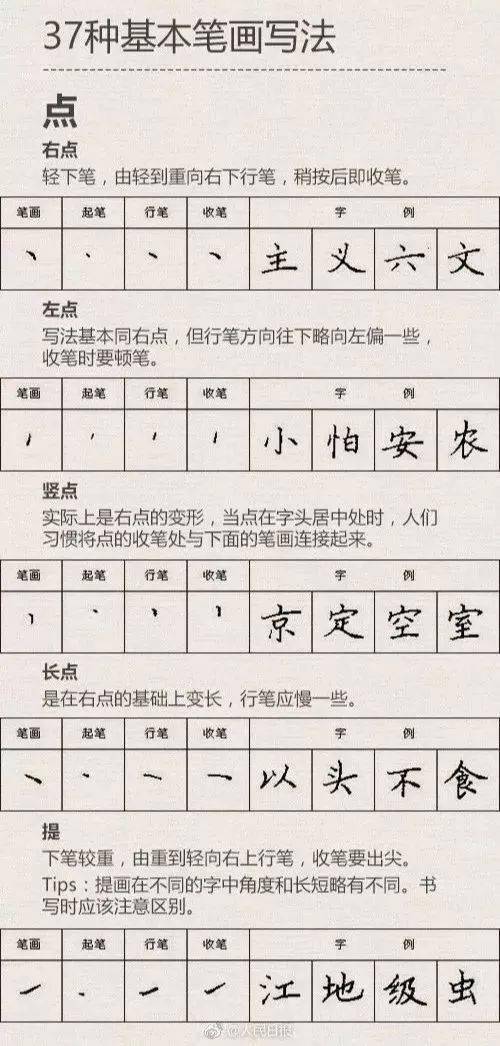 37种基本笔画写法
点
右点
轻下笔，由轻到重向右下行笔，稍按后即收笔。
笔画 起笔 行笔 收笔 字 例
丶 丶 丶 丶 主 义 六 文
左点
写法基本同右点，但行笔方向往下略向左偏一些，
收笔时要顿笔。
笔画 起笔 行笔 收笔 字 例
小 怕 安 农
竖点
实际上是右点的变形，当点在字头居中处时，人们
习惯将点的收笔处与下面的笔画连接起来。
笔画 起笔 行笔 收笔 字 例
京 定 空 室
长点
是在右点的基础上变长，行笔应慢一些。
笔画 起笔 行笔 收笔 字 例
以 头 不 食
提
下笔较重，由重到轻向右上行笔，收笔要出尖。
Tips：提画在不同的字中角度和长短略有不同。书
写时应该注意区别。
笔画 起笔 行笔 收笔 字 例
江 地 级 虫
@人民日报